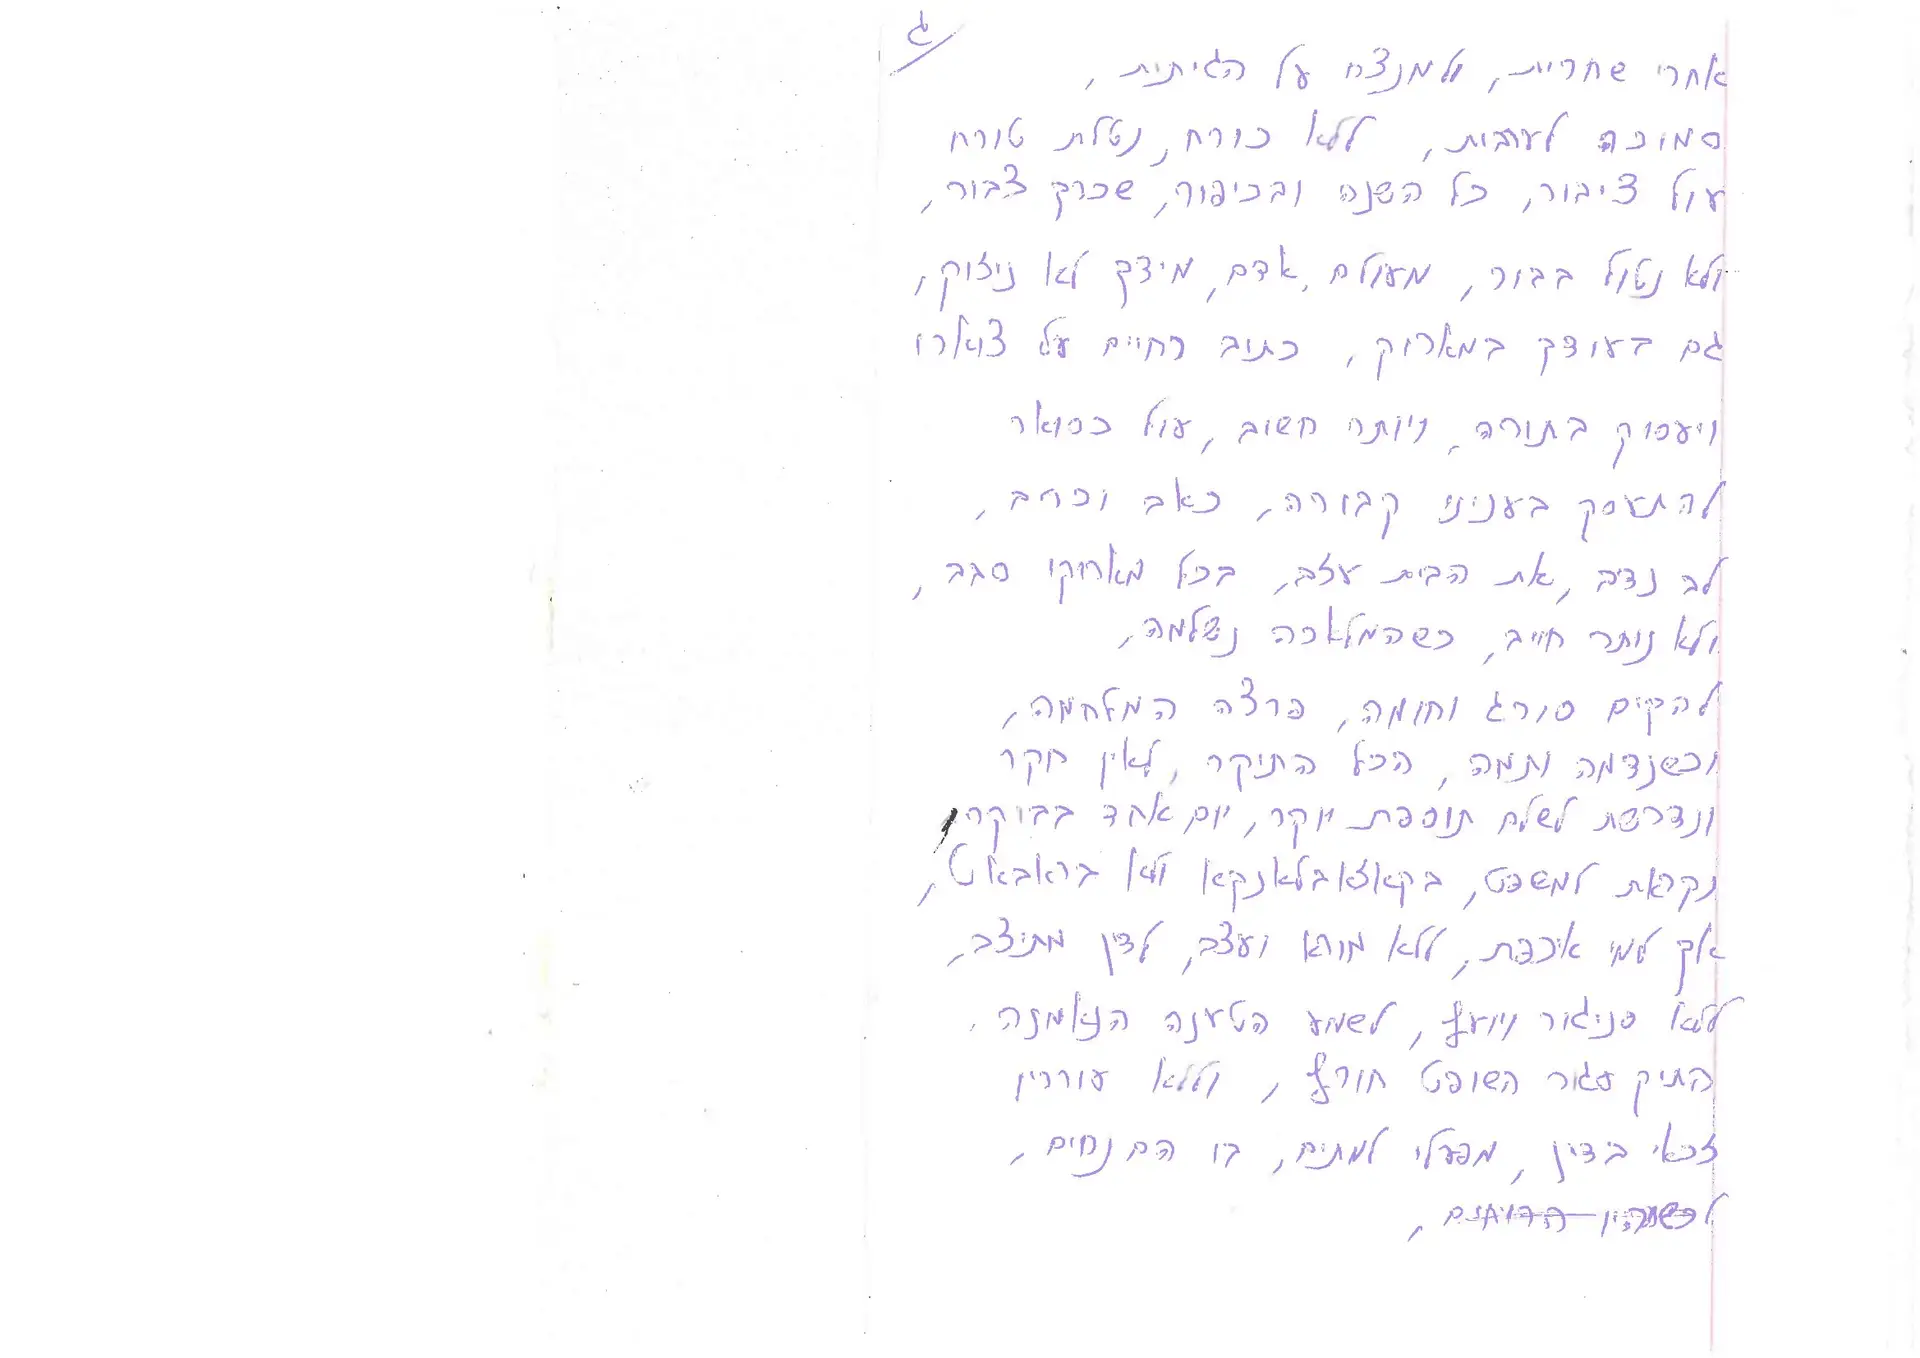 ג
אחרי שחרית, ולמנצח על הגיתית,
סמוכה לערבית, ללא כורח, נטלת טורח
עול ציבור, כל השנה ובכיפור, שכרך צבור,
ולא נטול בבור, מעולם, אדם, מידך לא ניזוק,
גם בעודך במארוק, כתוב רחיים על צוארו
ויעסוק בתורה, ויותר חשוב, עול כסואר
להתעסק בעניני קבורה, כאב וכריב,
לב נדיב, את הבית עזב, בכל מארוקו סבב,
ולא נותר חייב, כשהמלאכה נשלמה,
להקים סורג וחומה, פרצה המלחמה,
וכשנדמה ותמה, הכל התיקר, לאין חקר
ונדרשת לשלם תוספת יוקר, יום אחד בבוקר,
נקראת למשפט, בקאזאבלאנקא ולא בראבאט,
אך למי איכפת, ללא מורא ועצב, לדין מתיצב,
ללא סניגור ויועץ, לשמע הטענה הנאמנה,
התיק סגור השופט חורץ, וללא עוררין
זכאי בדין, מפעלי למתים, בו הם נחים,